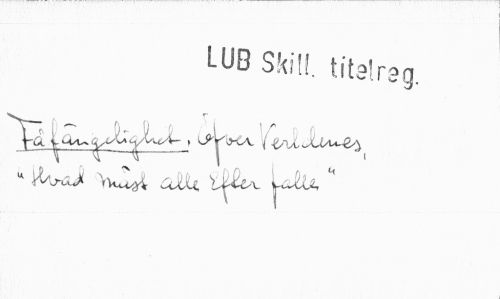 LUB Skill. titelreg.
Fåfängelighet. Öfver Verldenes,
"Hvad måst alle Efter falle"